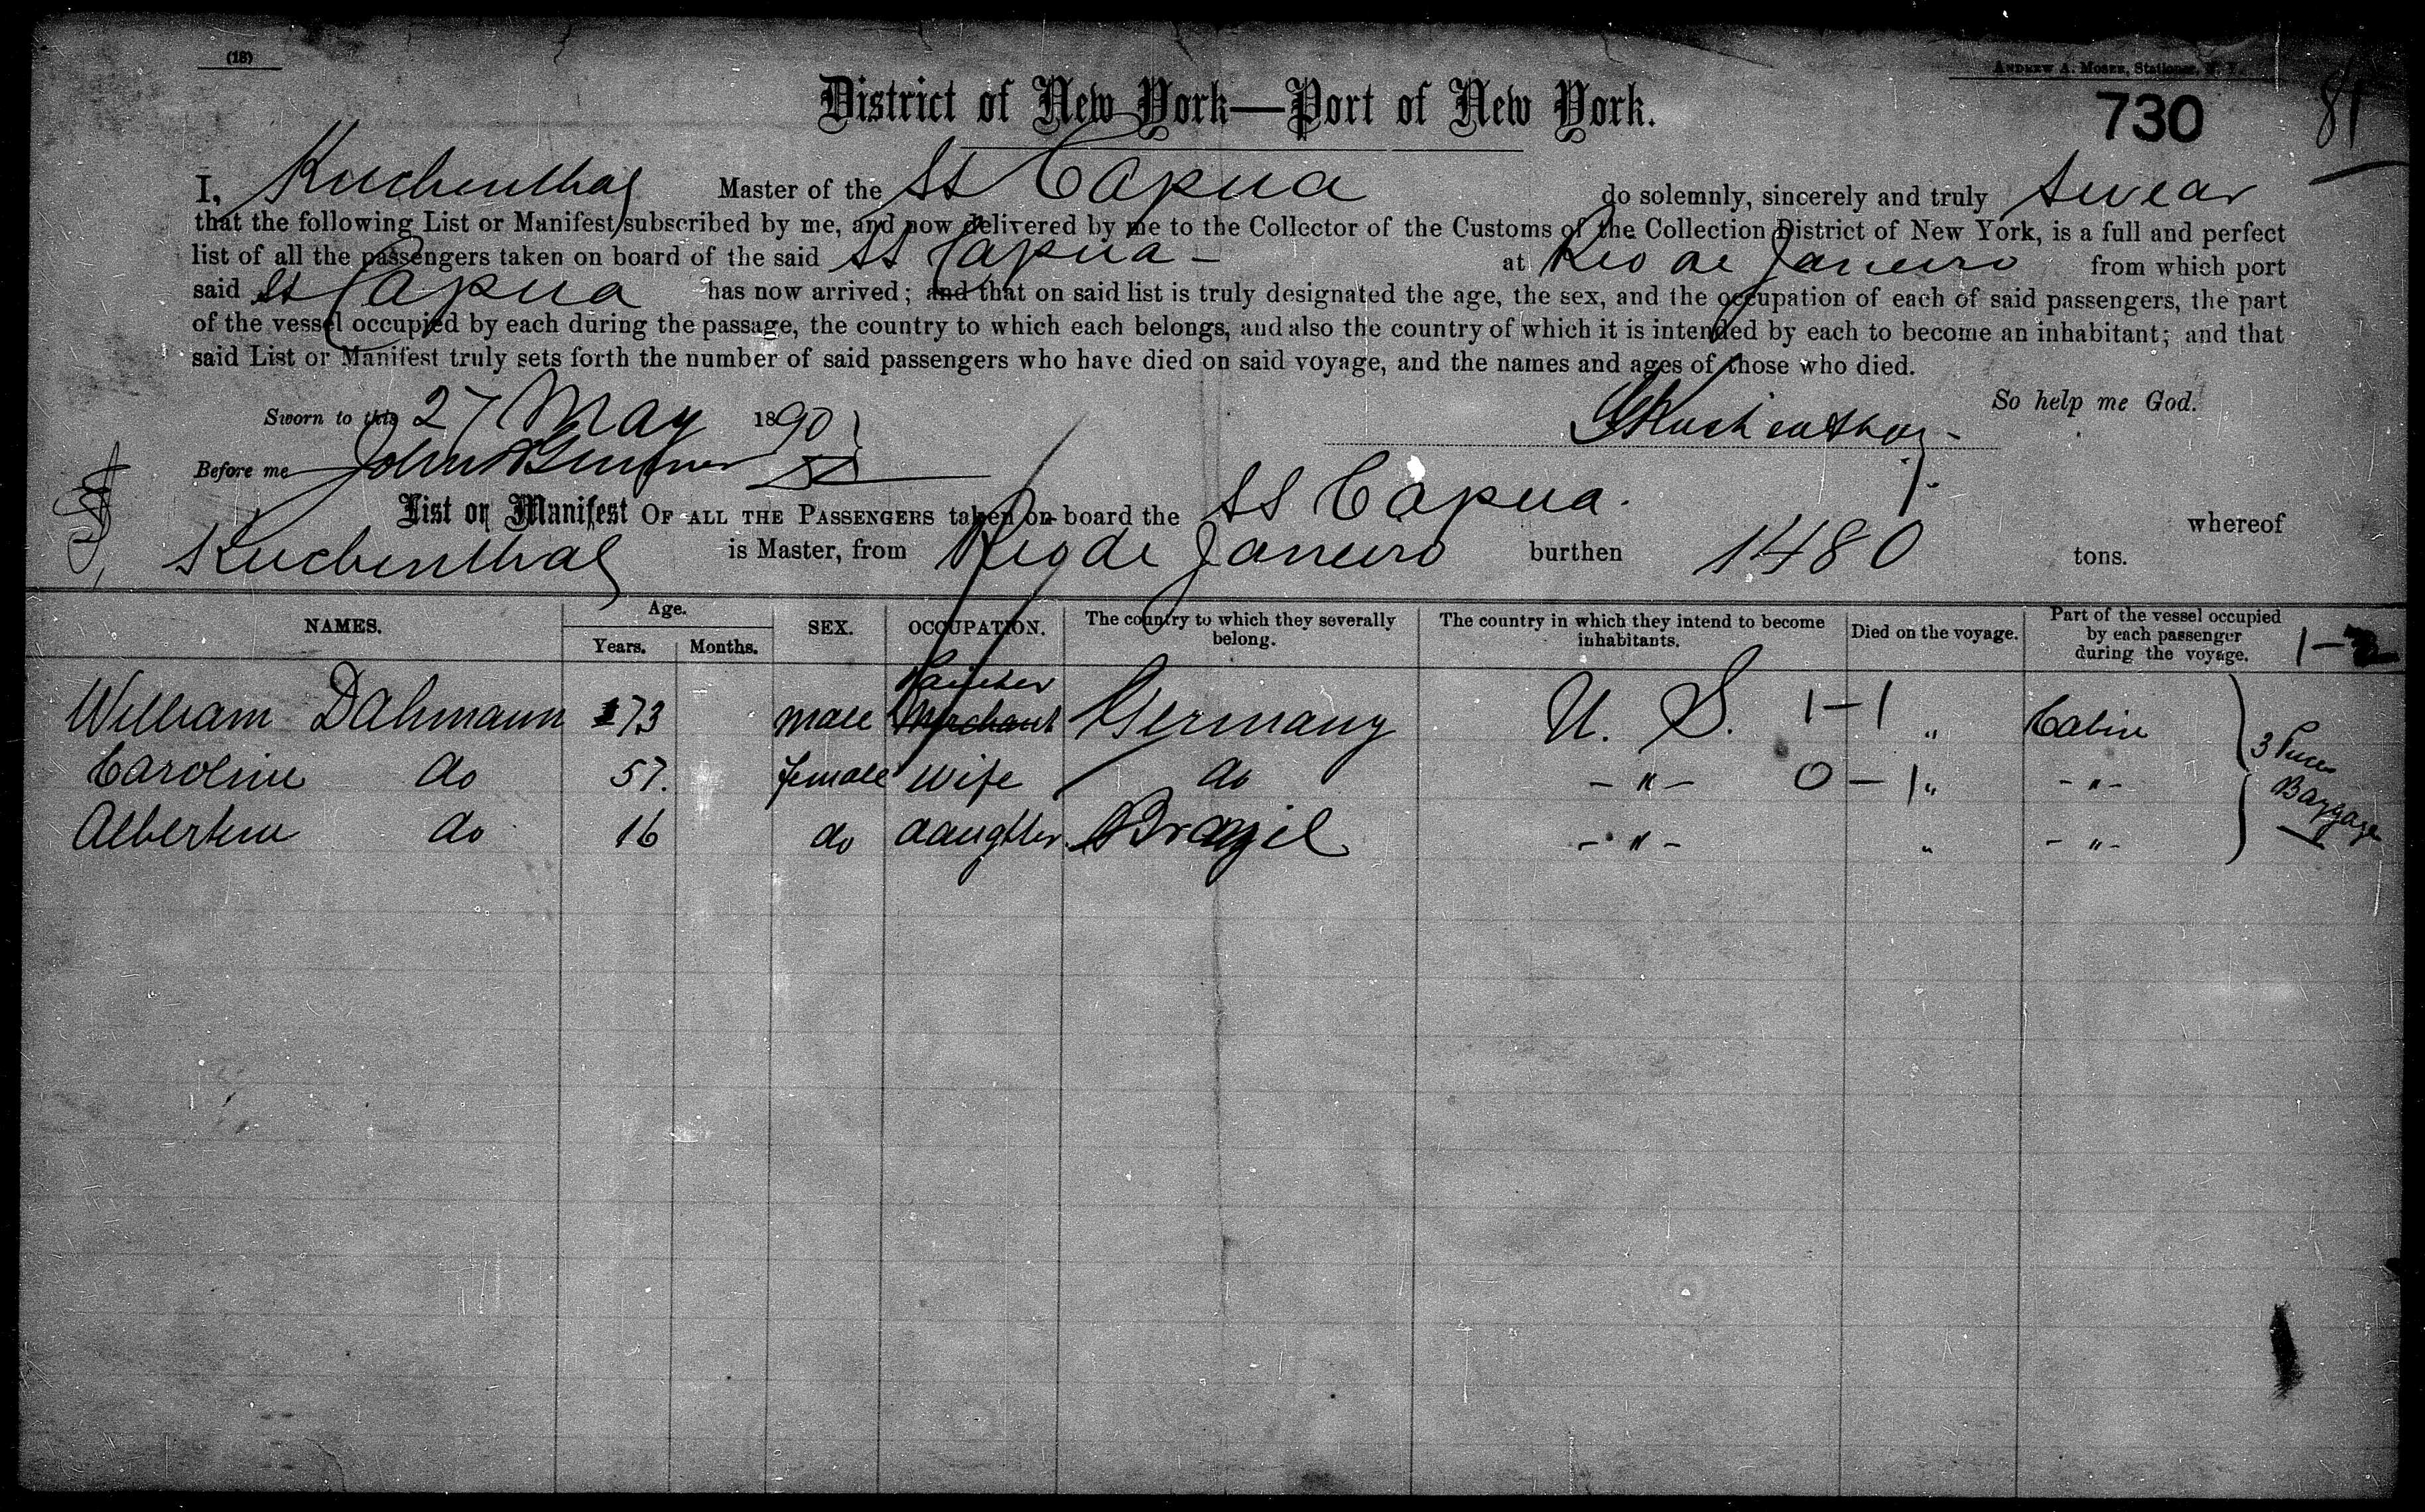 (18)
ANDREW A. MOSER, Stationer, N. Y.
District of New York—Port of New York.
730
81
I, Kuchenthal Master of the SS Capua do solemnly, sincerely and truly swear
that the following List or Manifest subscribed by me, and now delivered by me to the Collector of the Customs of the Collection District of New York, is a full and perfect
list of all the passengers taken on board of the said SS Capua - at Rio de Janeiro from which port
said SS Capua has now arrived; and that on said list is truly designated the age, the sex, and the occupation of each of said passengers, the part
of the vessel occupied by each during the passage, the country to which each belongs, and also the country of which it is intended by each to become an inhabitant; and that
said List or Manifest truly sets forth the number of said passengers who have died on said voyage, and the names and ages of those who died.
So help me God.
Sworn to this 27 May 1890
Kuchenthal
Before me John
List or Manifest OF ALL THE PASSENGERS taken on board the SS Capua. whereof
Kuchenthal is Master, from Rio de Janeiro burthen 1480 tons.
NAMES. Age. Years. Months. SEX. OCCUPATION. The country to which they severally belong. The country in which they intend to become inhabitants. Died on the voyage. Part of the vessel occupied by each passenger during the voyage. 1-2
William Dahmann 73 male Merchant Germany U. S. 1-1 " Cabin
Caroline do 57. female wife do - " - 0-1 " - " -
Albertine do 16 do daughter Brazil - " - " - " -
3 Pieces
Baggage